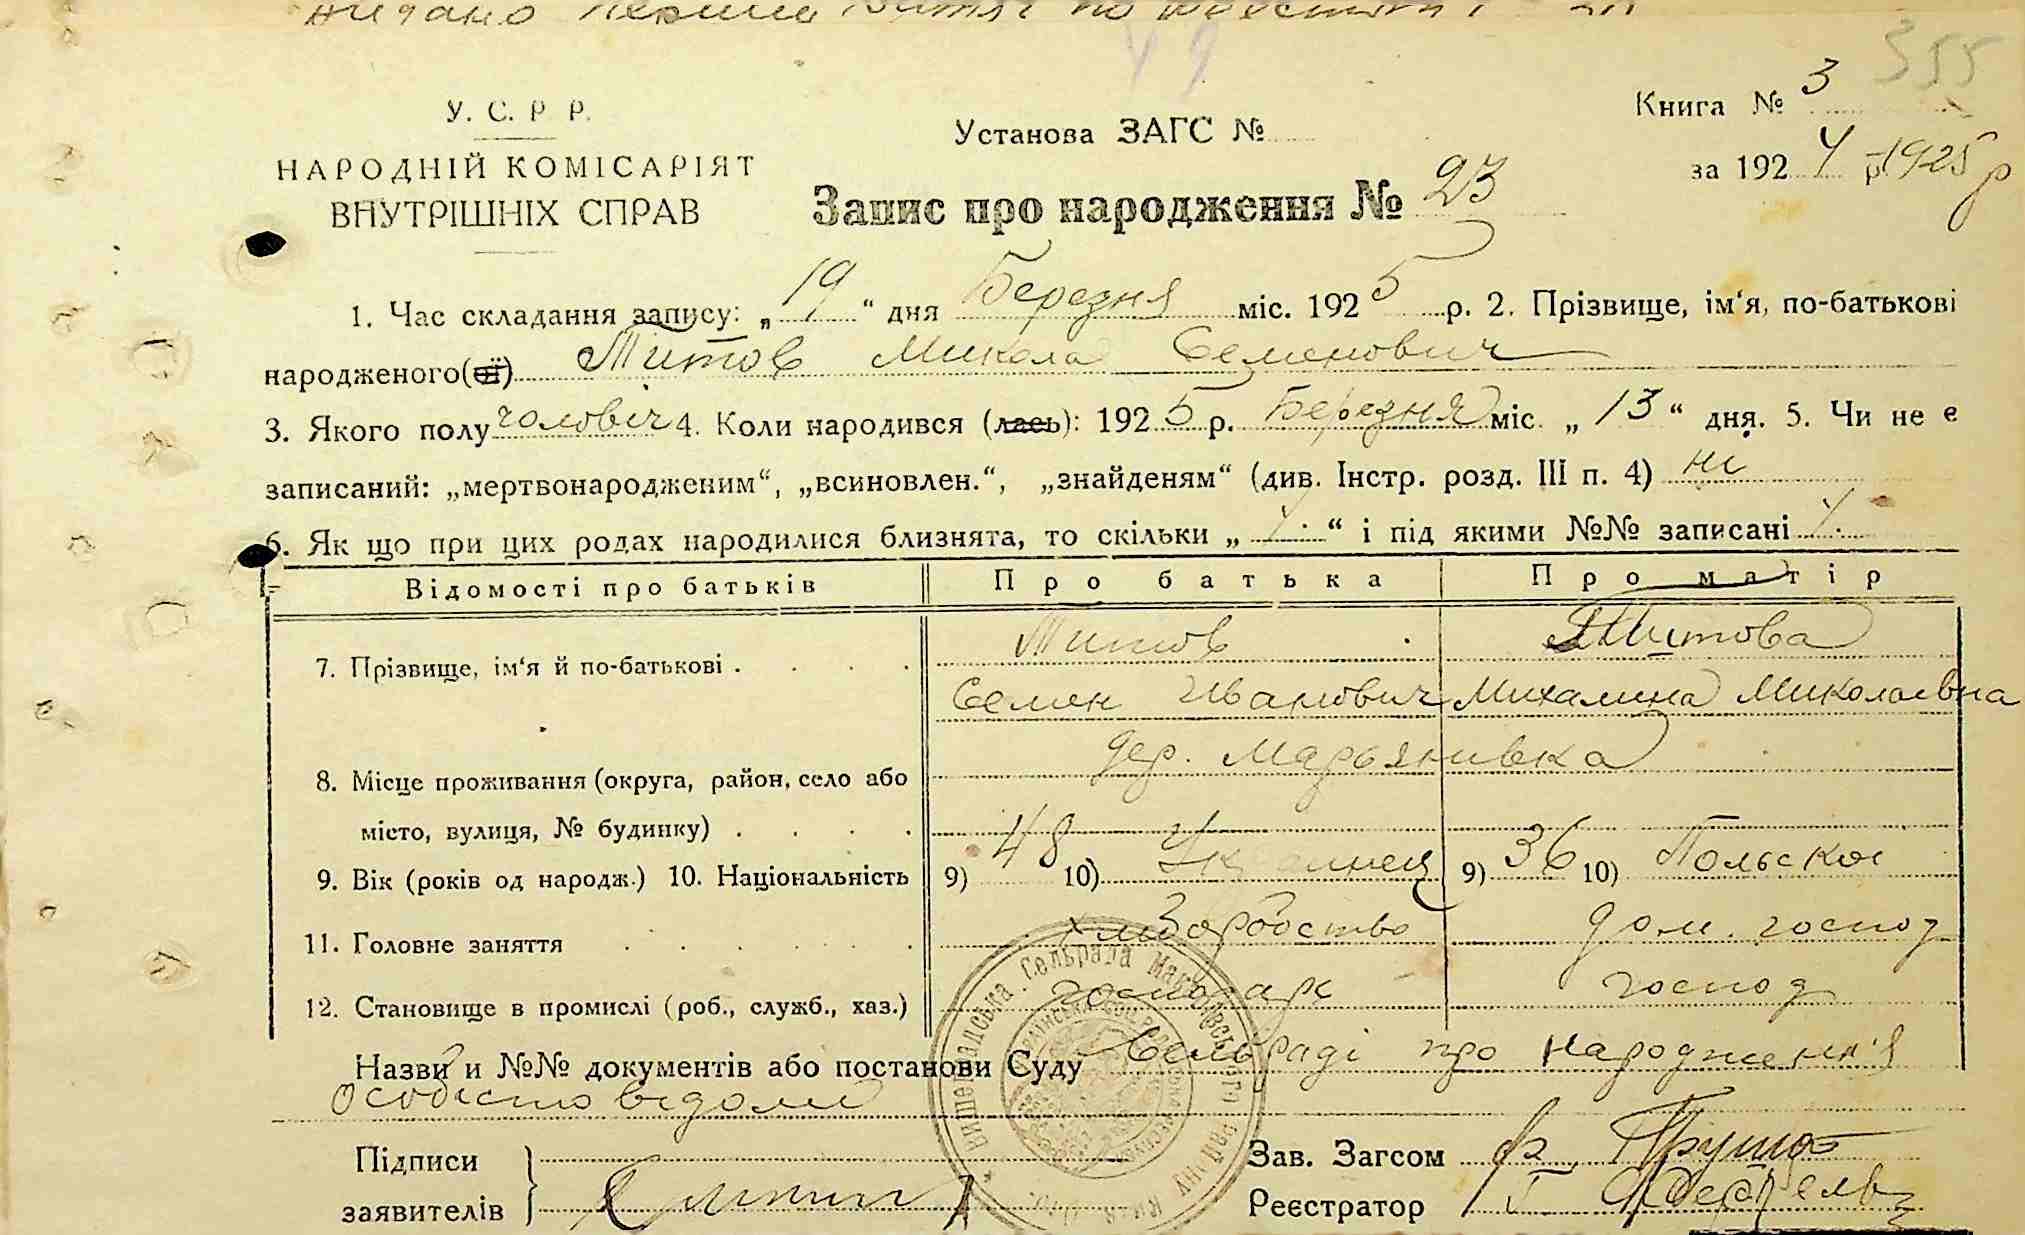 Видано
355
У. С. Р. Р.
Книга № 3
Установа ЗАГС №
НАРОДНІЙ КОМІСАРІЯТ
за 1924 р - 1925 р
ВНУТРІШНІХ СПРАВ
Запис про народження № 23
1. Час складання запису: „19“ дня Березня міс. 1925 р. 2. Прізвище, ім‘я, по-батькові
народженого(ої) Титов Микола Семенович
3. Якого полу чоловіч 4. Коли народився (лась): 1925 р. Березня міс. „13“ дня. 5. Чи не є
записаний: „мертвонародженим“, „всиновлен.“, „знайденям“ (див. Інстр. розд. III п. 4) ні
6. Як що при цих родах народилися близнята, то скільки „ “ і під якими №№ записані
Відомості про батьків Про батька Про матір
7. Прізвище, ім‘я й по-батькові . . . . Титов Титова
Семен Иванович Михалина Миколаевна
8. Місце проживання (округа, район, село або дер. Марьянивка
місто, вулиця, № будинку) . . . .
9. Вік (років од народж.) 10. Національність 9) 48 10) Украинец 9) 36 10) Польская
11. Головне заняття . . . . . . Хліборобство дом. господ
12. Становище в промислі (роб., служб., хаз.) господарк господ
Назви и №№ документів або постанови Суду Сельраді про народження
Особисто відоми
Підписи
заявителів
Зав. Загсом
Реєстратор